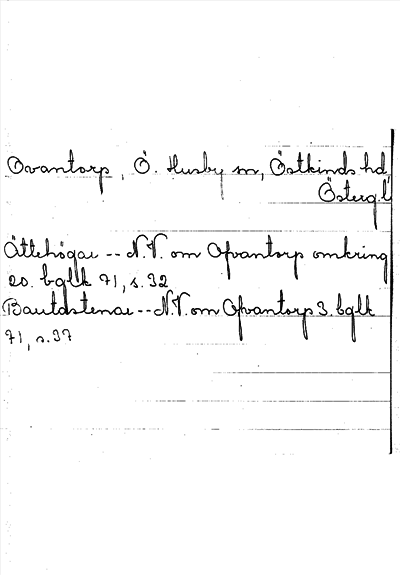 Ovantorp, Ö. Husby sn, Östkinds hd,
Österg.l
Ättehögar -- N.V. om Ofvantorp omkring
20. bglk 71, s. 32
Bautastenar -- N.V. om Ofvantorp 3. bglk
71, s. 37